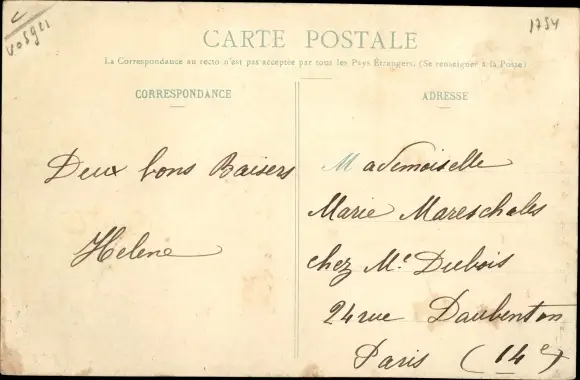 Vosges
1754
CARTE POSTALE
La Correspondance au recto n'est pas acceptée par tous les Pays Étrangers. (Se renseigner à la Poste)
CORRESPONDANCE
ADRESSE
Deux bons Baisers
Helene
Mademoiselle
Marie Mareschales
chez Mr Dubois
24 rue Daubenton
Paris (14e)